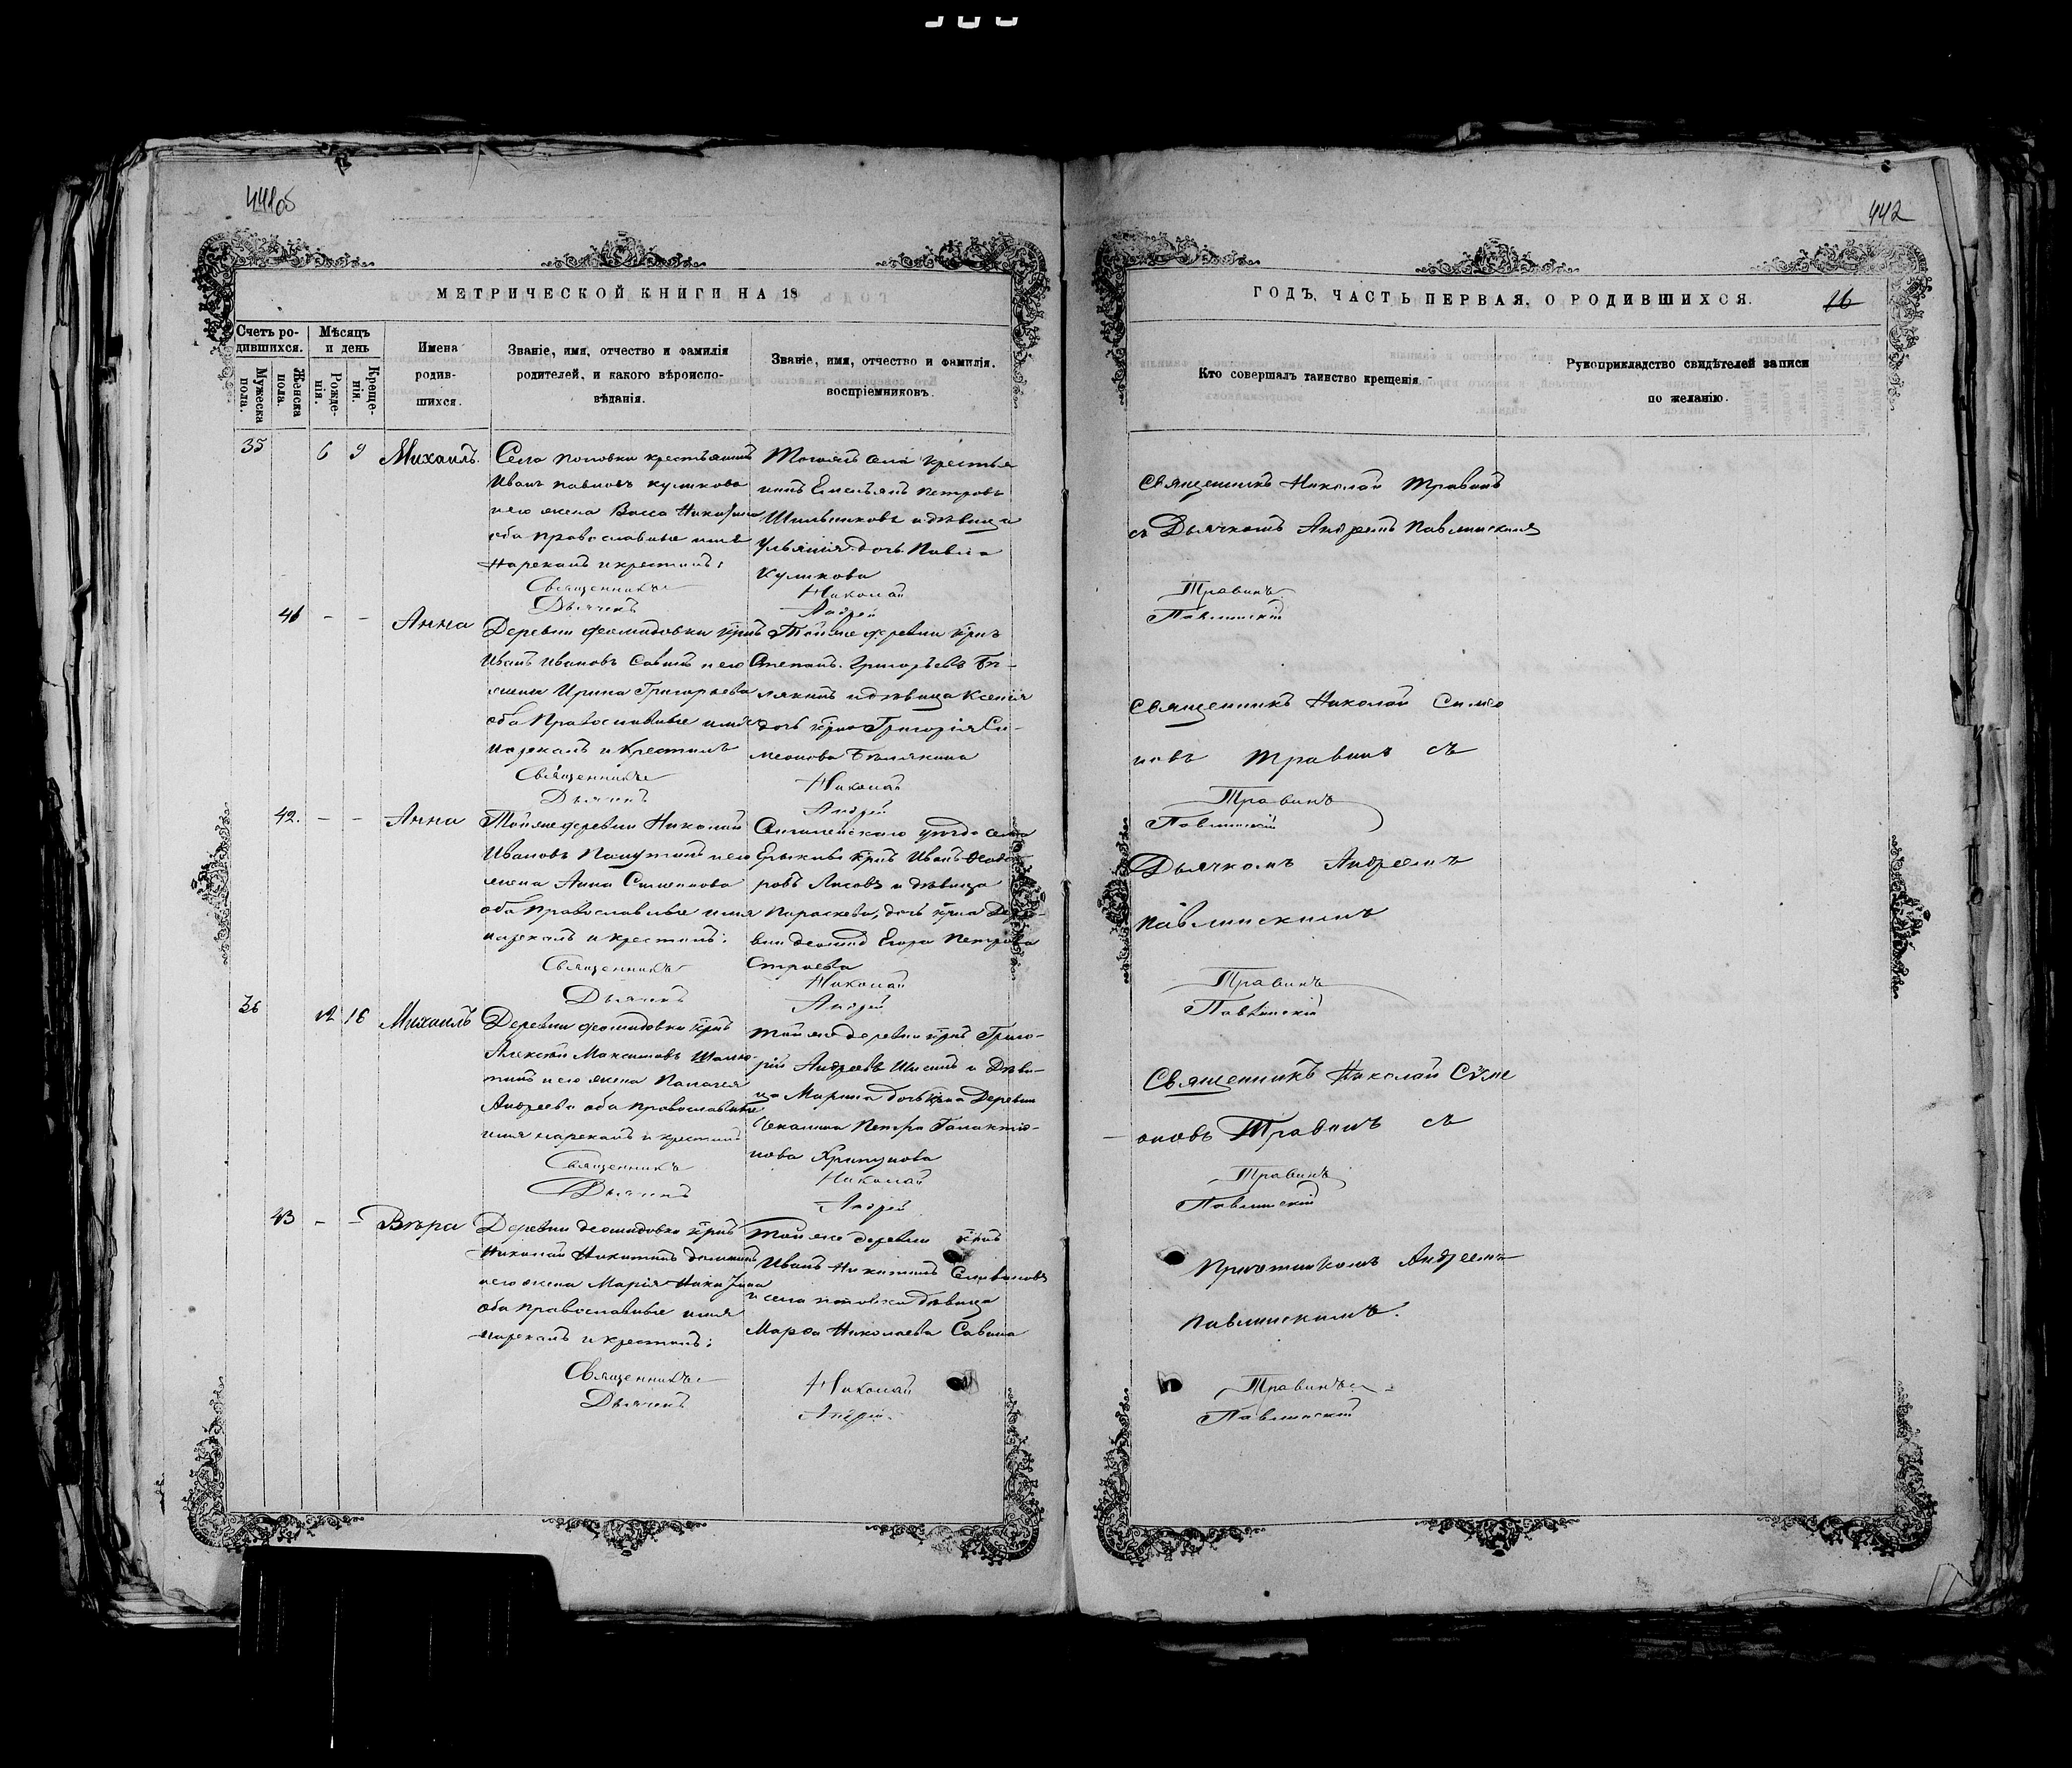 441об
442
МЕТРИЧЕСКОЙ КНИГИ НА 18
ГОДЪ, ЧАСТЬ ПЕРВАЯ, О РОДИВШИХСЯ.
16
Счетъ ро-
дившихся.
Мужеска пола.
Женска пола.
Мѣсяцъ
и день
Рожде-
нія.
Креще-
нія.
Имена
родив-
шихся.
Званіе, имя, отчество и фамилія
родителей, и какого вѣроиспо-
вѣданія.
Званіе, имя, отчество и фамилія.
воспріемниковъ.
Кто совершалъ таинство крещенія.
Рукоприкладство свидѣтелей записи
по желанію.
35 6 9 Михаилъ.
Села поповки крестьянинъ
Иванъ павловъ куликовъ
и его жена Васса
оба православные имя
Нарекалъ и крестилъ:
Священникъ
Дьячекъ
Тогоже села крестья
нинъ Емельянъ петровъ
и дѣвица
Ульянія дочь Павла
куликова
Николай
Андрей
Священникъ Николай Травинъ
съ Дьячкомъ Андреемъ Павлинскимъ
Травинъ
Павлинскій
41 - - Анна
Деревни крнъ
Иванъ Ивановъ Савинъ и его
жена Ирина Григорьева
оба Православные имя
нарекалъ и крестилъ
Священникъ
Дьячекъ
Тойже деревни крнъ
Степанъ Григорьевъ Бѣ-
лякинъ и дѣвица Ксенія
дочь крна Григорія Си-
меонова Бѣлякина
Николай
Андрей
Священникъ Николай Симео
новъ Травинъ съ
Травинъ
Павлинскій
42. - - Анна
Тойже деревни Николай
Ивановъ и его
жена Анна
оба православные имя
нарекалъ и крестилъ:
Священникъ
Дьячекъ
уѣзда села
крнъ Иванъ Ѳеодо
ровъ Лисовъ и дѣвица
Параскева, дочь крна Дере-
вни Егора Петрова
Николай
Андрей
Дьячкомъ Андреемъ
Павлинскимъ
Травинъ
Павлинскій
36 12 16 Михаилъ
Деревни крнъ
Алексѣй Максимовъ
и его жена
Андреева оба православные
имя нарекалъ и крестилъ
Священникъ
Дьячекъ
Тойже деревни крнъ Григо-
рій Андреевъ и Дѣви-
ца Марина дочь крна Деревни
Чекалина Петра Галактіо-
нова Хрипунова
Николай
Андрей
Священникъ Николай Симе
оновъ Травинъ съ
Травинъ
Павлинскій
43 - - Вѣра
Деревни крнъ
Николай Никитинъ
и его жена Марія
оба православные имя
нарекалъ и крестилъ:
Священникъ
Дьячекъ
Тойже деревни крнъ
Иванъ Никитинъ Селивановъ
и села поповки дѣвица
Марѳа Николаева Савина
Николай
Андрей
Причетникомъ Андреемъ
Павлинскимъ.
Травинъ
Павлинскій